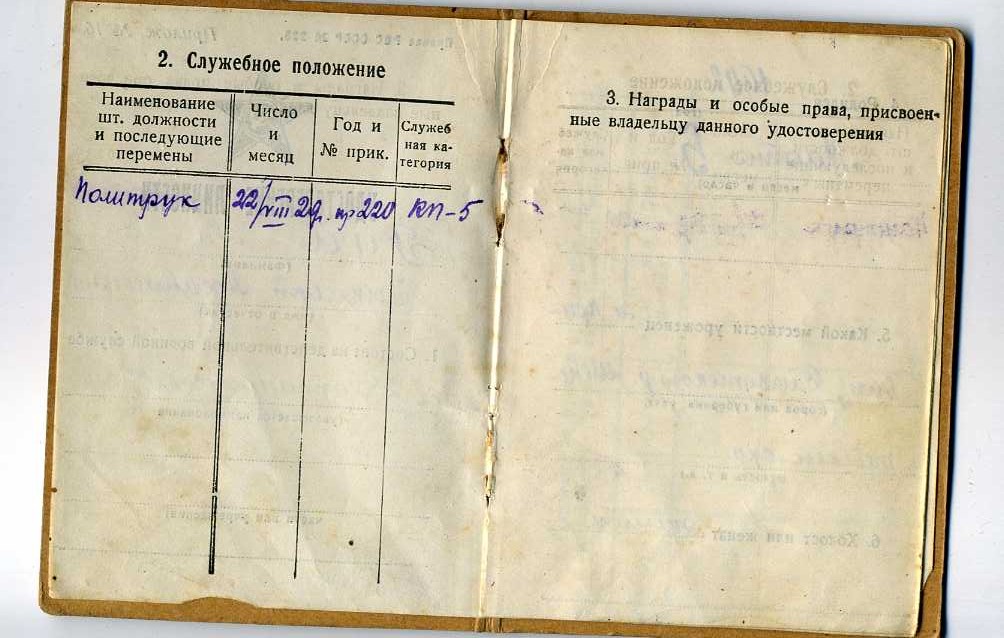 2. Служебное положение
Наименование
шт. должности
и последующие
перемены
Число
и
месяц
Год и
№ прик.
Служеб
ная ка-
тегория
Политрук 22/VIII 29г. пр 220 КП-5
3. Награды и особые права, присвоен-
ные владельцу данного удостоверения